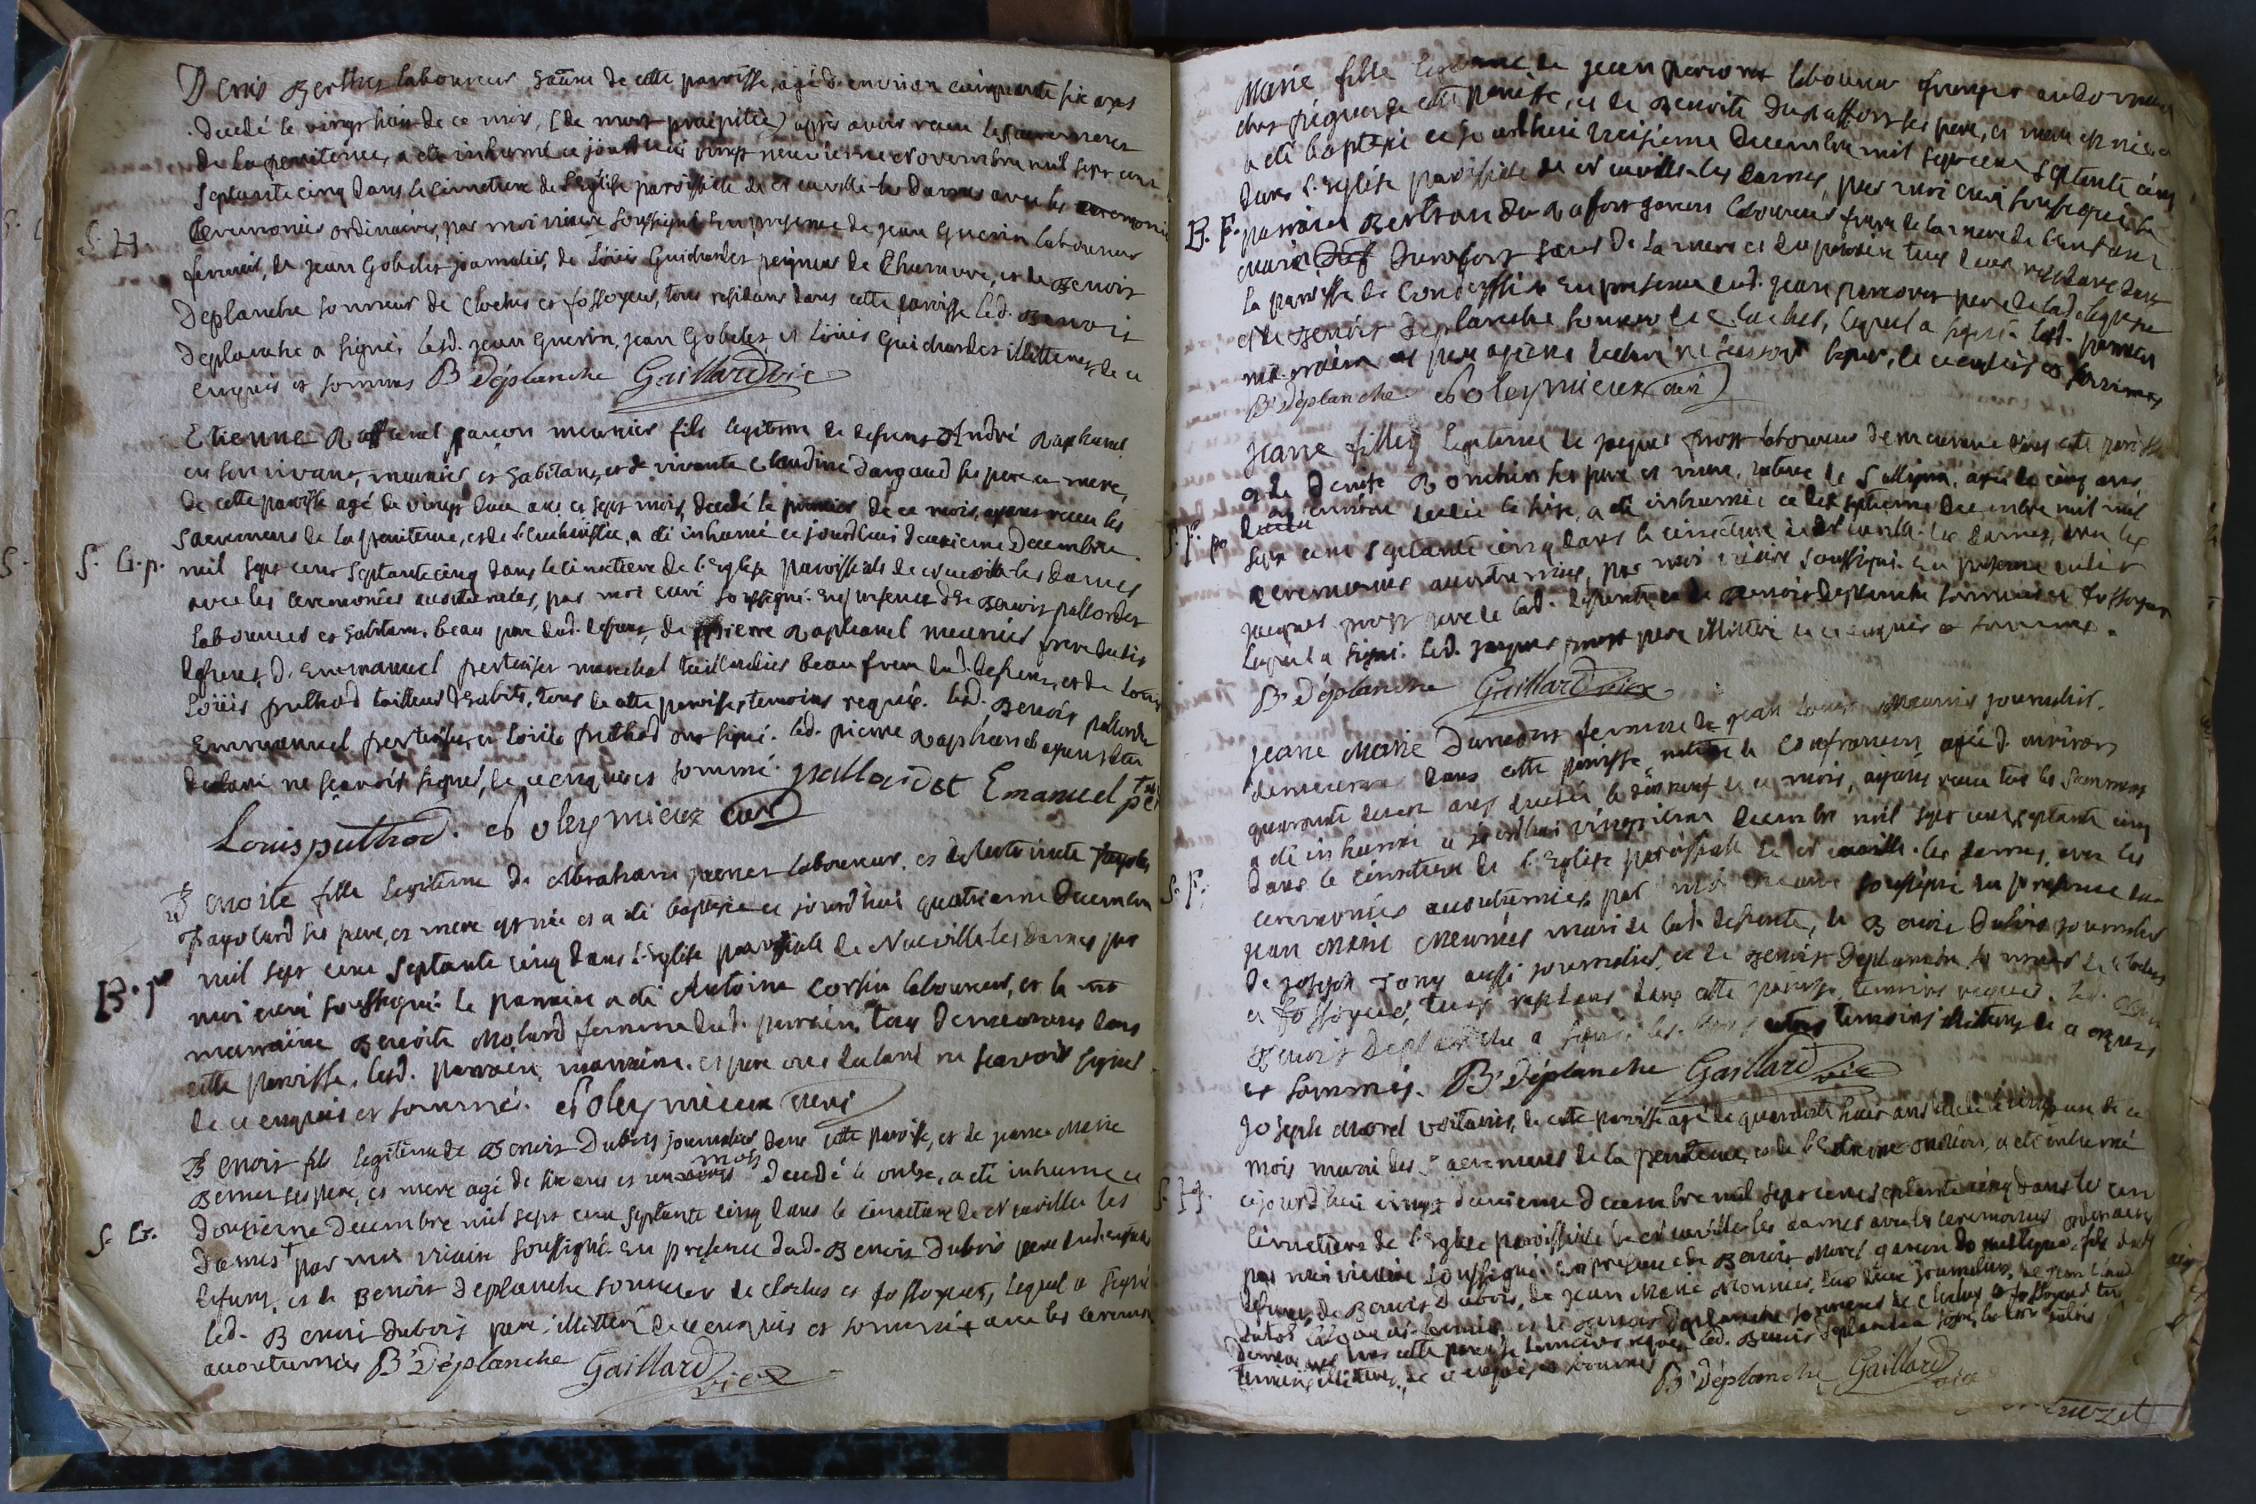 Denis Berthet laboureur, de cette paroisse, agé d. environ cinquante six ans
decedé le vingt huit de ce mois, (de mort precipitée) apprès avoir recu le sacrement
de la penitence, a eté inhumé ce jourd'hui vingt neuvieme Novembre mil sept cent
septante cinq dans le cimetiere de l'Eglise paroissiale de Neuville-les Dames avec les ceremonies
S. H.
Ceremonies ordinaires, par moi vicaire soussigné. En presence de jean Guerin laboureur
fermier, de jean Gobelet journalier, de Loüis Guichardet peigneur de Chanvre, et de Benoit
Deplanche sonneur de cloches et fossoyeur, tous residans dans cette paroisse led. Benoit
Deplanche a signé, lesd. jean Guerin, jean Gobelet et Loüis Guichardet illitteres, de ce
enquis et sommes B Déplanche Gaillard vic
Etienne Raffanel garçon meunier fils legitime de defunt André Raphanel
en son vivant, meunier, et habitant, et de vivante Claudine Dargaud ses pere et mere,
de cette paroisse agé de vingt deux ans et sept mois, decedé le premier de ce mois, ayant recu les
sacremens de la penitence, et de l'Eucharistie, a eté inhumé ce jourd'hui deuxieme Decembre
S. G.p.
mil sept cent septante cinq dans le cimetiere de l'Eglise paroissiale de Neuville-les Dames
avec les ceremonies accoutumées, par moi curé soussigné. En presence de Benoit pallordet
laboureur et habitant. beau pere dud. defunt, de pierre Raphanel meunier frere dudit
defunt, d. Emmanuel pertuiset marechal taillandier beau frere dud. defunt, et de Loüis
Loüis puthod tailleur d'habits, tous de cette paroisse temoins requis. lesd. Benoit pallordet
Emmanuel pertuiset, et Loüis puthod ont signé. led. pierre Raphanel ayant
declaré ne scavoir signer, de ce enquis et sommé. pallordet Emanuel
Louis puthod. Soleymieux curé
Benoite fille legitime de Abraham laboureur, et de
Fayolard ses pere, et mere est née et a eté baptisée ce jourd'hui quatrieme Decembre
mil sept cent septante cinq dans l'Eglise paroissiale de Neuville-les Dames par
B. F.
moi curé soussigné. le parrain a eté Antoine Corsin laboureur, et la
marraine Benoite Molard femme dud. parrain, tous demeurans dans
cette paroisse. lesd. parrain, marraine. et pere ont declaré ne scavoir signer
de ce enquis et sommés. Soleymieux curé
Benoit fils legitime de Benoit Dubois journalier dans cette paroisse, et de jeanne Marie
Bernet ses pere, et mere agé de six ans et mois decedé le onze, a eté inhumé ce
douzieme Decembre mil sept cent septante cinq dans le cimetiere de Neuville les
S. G.
Dames + par moi vicaire soussigné. En presence dud. Benoit Dubois pere dud. enfant
et de Benoit Deplanche sonneur de cloches et fossoyeur, lequel a signé
led. Benoit Dubois pere, illitteré de ce enquis et sommé + avec les ceremonies
accoutumées B Déplanche Gaillard vic
Marie fille legitime de jean perconet laboureur granger au domaine
de cette paroisse, et de Benoite Duraffort ses pere, et mere est née et
a eté baptisée ce jourd'hui treizieme Decembre mil sept cent septante cinq
dans l'Eglise paroissiale de Neuville-les Dames, par moi curé soussigné. le
B. F.
parrain Bertrand garcon laboureur frere de la mere de l'enfant
soeur de la mere et du parrain tous deux residans dans
la paroisse de Condeyssiat En presence dud. jean perconet pere de lad.
et de Benoit Deplanche sonneur de cloches, lequel a signé. led. parrain
marraine et pere ayant declaré ne scavoir signer, de ce enquis et sommes
B Déplanche Soleymieux curé
Jeane fille legitime de jaques prost laboureur demeurant dans cette paroisse
et de Denise Ronchin ses pere et mere, native de Sulligna, agée de cinq ans
environ decedée le seize, a eté inhumée ce dix septieme Decembre mil
S. F. p.
sept cent septante cinq dans le cimetiere de Neuville-les Dames, avec les
ceremonies accoutumées, par moi vicaire soussigné. En presence dudit
jacques prost pere de lad. defunte et de Benoit Deplanche sonneur et fossoyeur
lequel a signé. led. jacques prost pere illitteré de ce enquis et sommé.
B Déplanche Gaillard vic
jeane Marie femme de jean Loüis Meunier journalier.
demeurant dans cette paroisse native de Confrancon agée d. environ
quarante deux ans decedée le dix neuf de ce mois, ayant recu tous les sacremens
a eté inhumée ce jourd'hui vingtieme Decembre mil sept cent septante cinq
S. F.
dans le cimetiere de l'Eglise paroissiale de Neuville-les Dames, avec les
ceremonies accoutumées par moi vicaire soussigné En presence de
jean Marie Meunier mari de lad. defunte, de Benoit Dubois journalier
de joseph Tony aussi journalier, et de Benoit Deplanche sonneur de cloches
et fossoyeur, tous residans dans cette paroisse, temoins requis. led.
Benoit Deplanche a signé. les autres temoins illitteres de ce enquis
et sommés. B Déplanche Gaillard vic
Joseph Morel voiturier, de cette paroisse agé de quarante huit ans decedé le vingt un de ce
mois muni des sacremens de la penitence, et de l'Extreme onction, a eté inhumé
S. H.
cejourd'hui vingt deuxieme Decembre mil sept cent septante cinq dans le
cimetiere de l'Eglise paroissiale de Neuville-les Dames avec les ceremonies ordinaires
par moi vicaire soussigné. En presence de Benoit Morel garçon domestique fils dud.
defunt, de Benoit Dubois, de jean Marie Meunier, tous deux journaliers,
et de Benoit Deplanche sonneur de cloches et fossoyeur
demeurant dans cette paroisse temoins requis. led. Benoit Deplanche a signé, les
temoins illitteres, de ce enquis et sommes
B Déplanche Gaillard vic